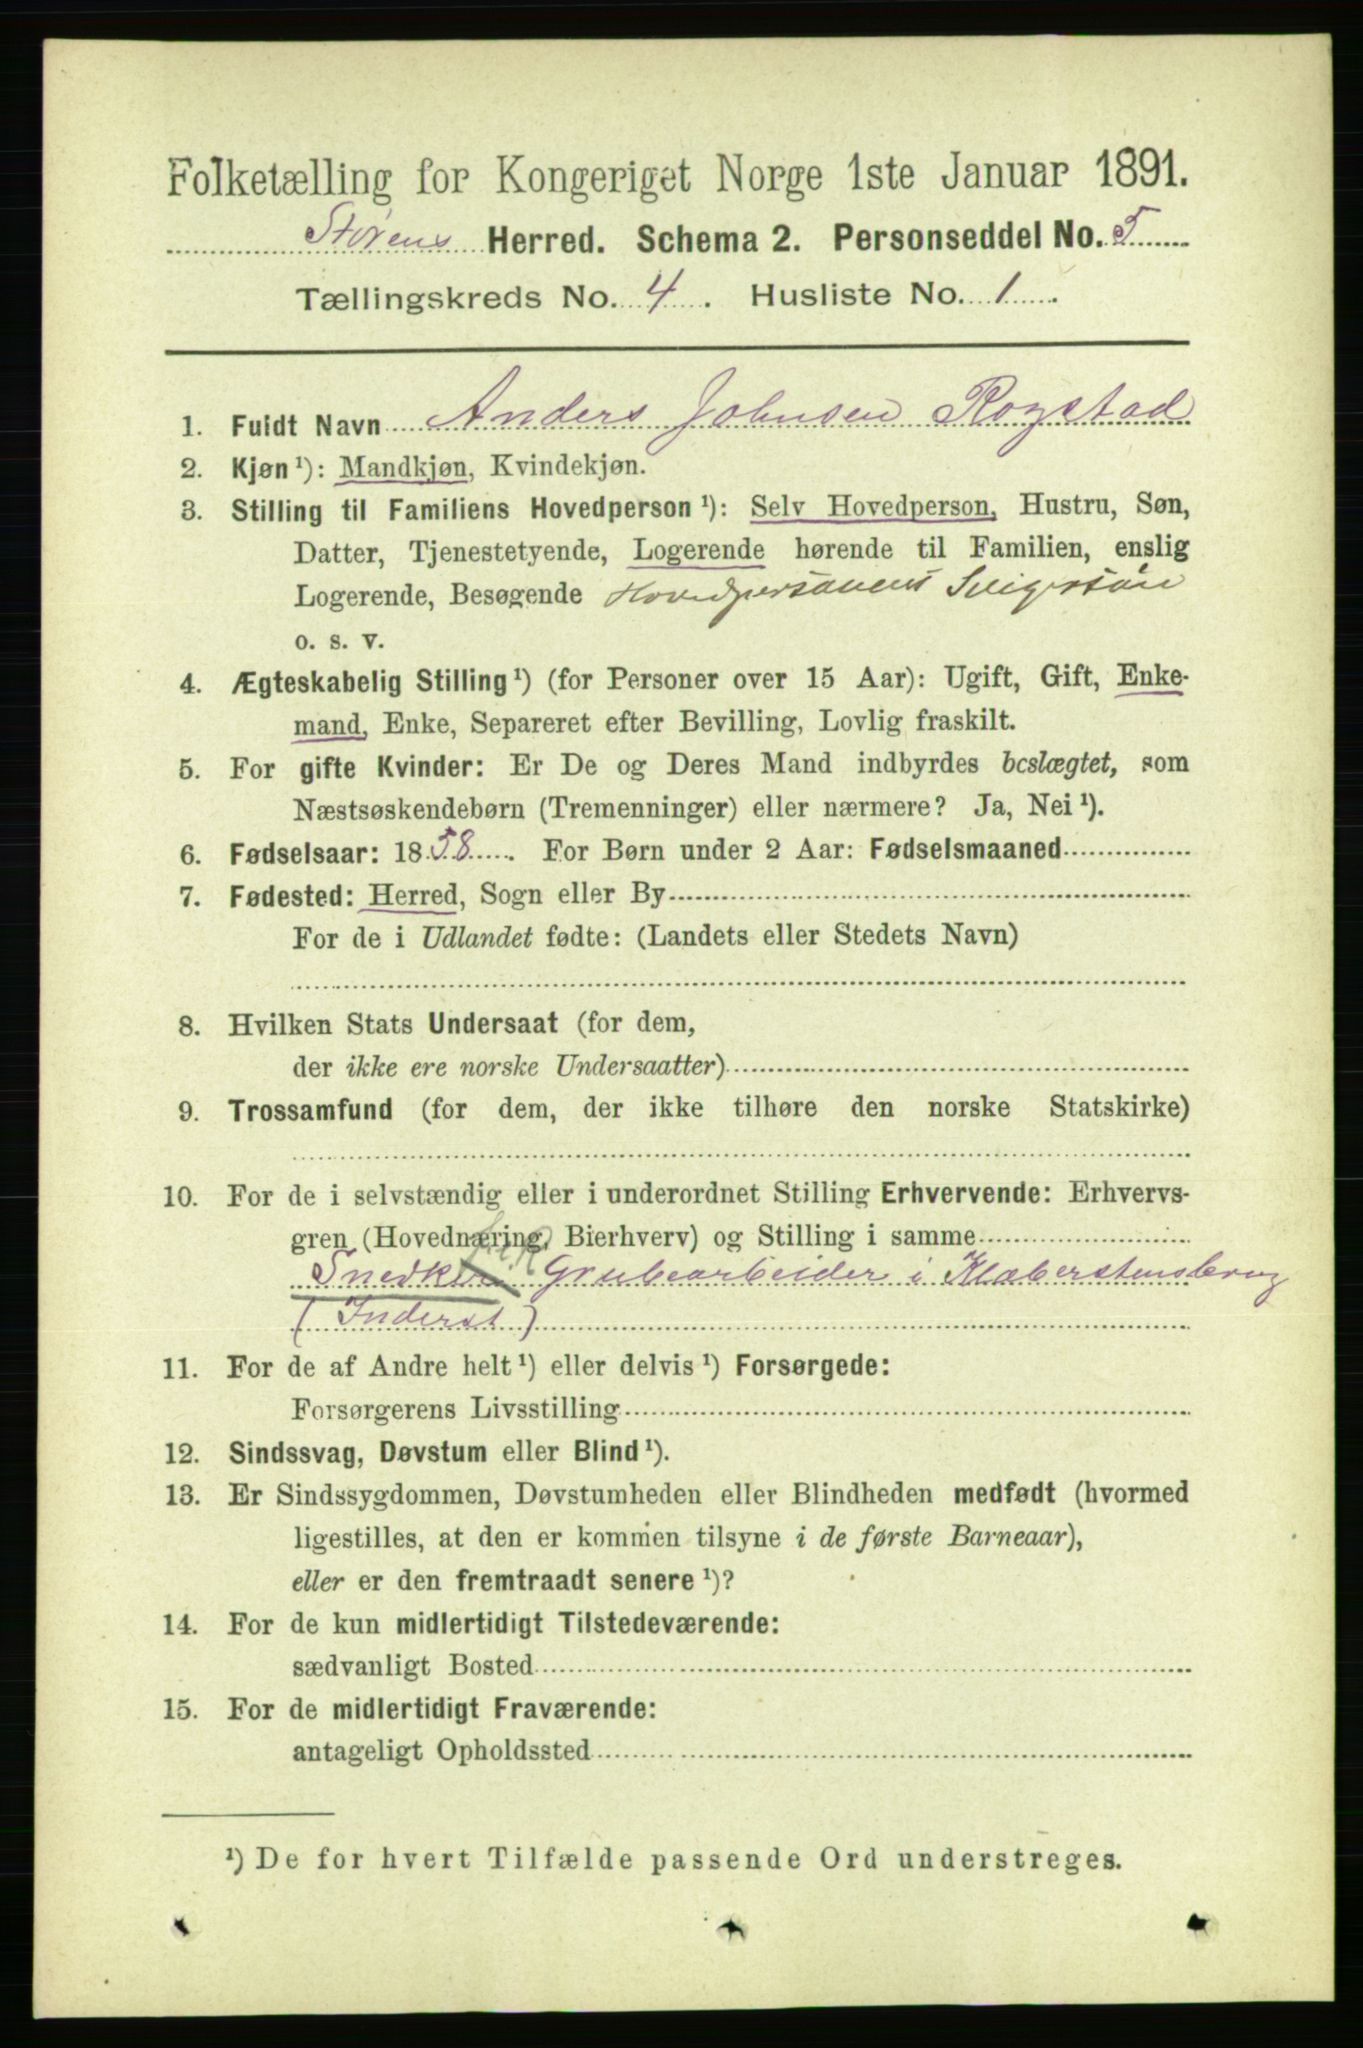 Folketælling for Kongeriget Norge 1ste Januar 1891.
Størens Herred. Schema 2. Personseddel No. 5
Tællingskreds No. 4. Husliste No. 1.
1. Fuldt Navn Anders Johnsen Rogstad
2. Kjøn¹): Mandkjøn, Kvindekjøn.
3. Stilling til Familiens Hovedperson¹): Selv Hovedperson, Hustru, Søn,
Datter, Tjenestetyende, Logerende hørende til Familien, enslig
Logerende, Besøgende Hovedpersonens Svigersøn
o. s. v.
4. Ægteskabelig Stilling¹) (for Personer over 15 Aar): Ugift, Gift, Enke-
mand, Enke, Separeret efter Bevilling, Lovlig fraskilt.
5. For gifte Kvinder: Er De og Deres Mand indbyrdes beslægtet, som
Næstsøskendebørn (Tremenninger) eller nærmere? Ja, Nei¹).
6. Fødselsaar: 1858. For Børn under 2 Aar: Fødselsmaaned
7. Fødested: Herred, Sogn eller By
For de i Udlandet fødte: (Landets eller Stedets Navn)
8. Hvilken Stats Undersaat (for dem,
der ikke ere norske Undersaatter)
9. Trossamfund (for dem, der ikke tilhøre den norske Statskirke)
10. For de i selvstændig eller i underordnet Stilling Erhvervende: Erhvervs-
gren (Hovednæring, Bierhverv) og Stilling i samme
Snedkeri Grubearbeider i Klæberstensbrug
(Inderst)
11. For de af Andre helt¹) eller delvis¹) Forsørgede:
Forsørgerens Livsstilling
12. Sindssvag, Døvstum eller Blind¹).
13. Er Sindssygdommen, Døvstumheden eller Blindheden medfødt (hvormed
ligestilles, at den er kommen tilsyne i de første Barneaar),
eller er den fremtraadt senere¹)?
14. For de kun midlertidigt Tilstedeværende:
sædvanligt Bosted
15. For de midlertidigt Fraværende:
antageligt Opholdssted
¹) De for hvert Tilfælde passende Ord understreges.